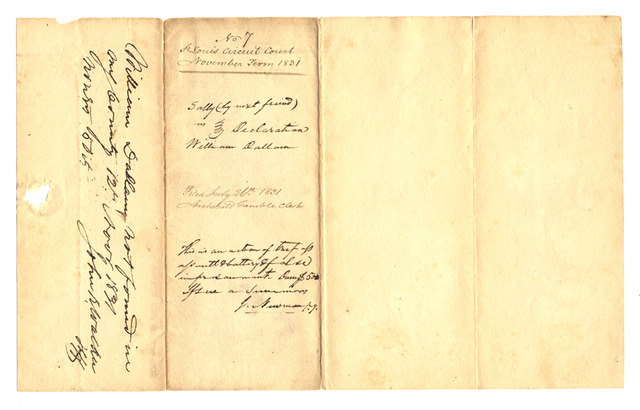 No 7
St Louis Circuit Court
November Term 1831
Sally (by next friend)
vs } Declaration
William Dallam
Filed July 26th 1831
Archibald Gamble Clerk
This is an action of tresp
assault & battery & false
imprisonment Dam $500
Issue a Summons
J. Newman p.q.
William Dallam not found in
my County 12th Novr 1831
John K Walker
Shff